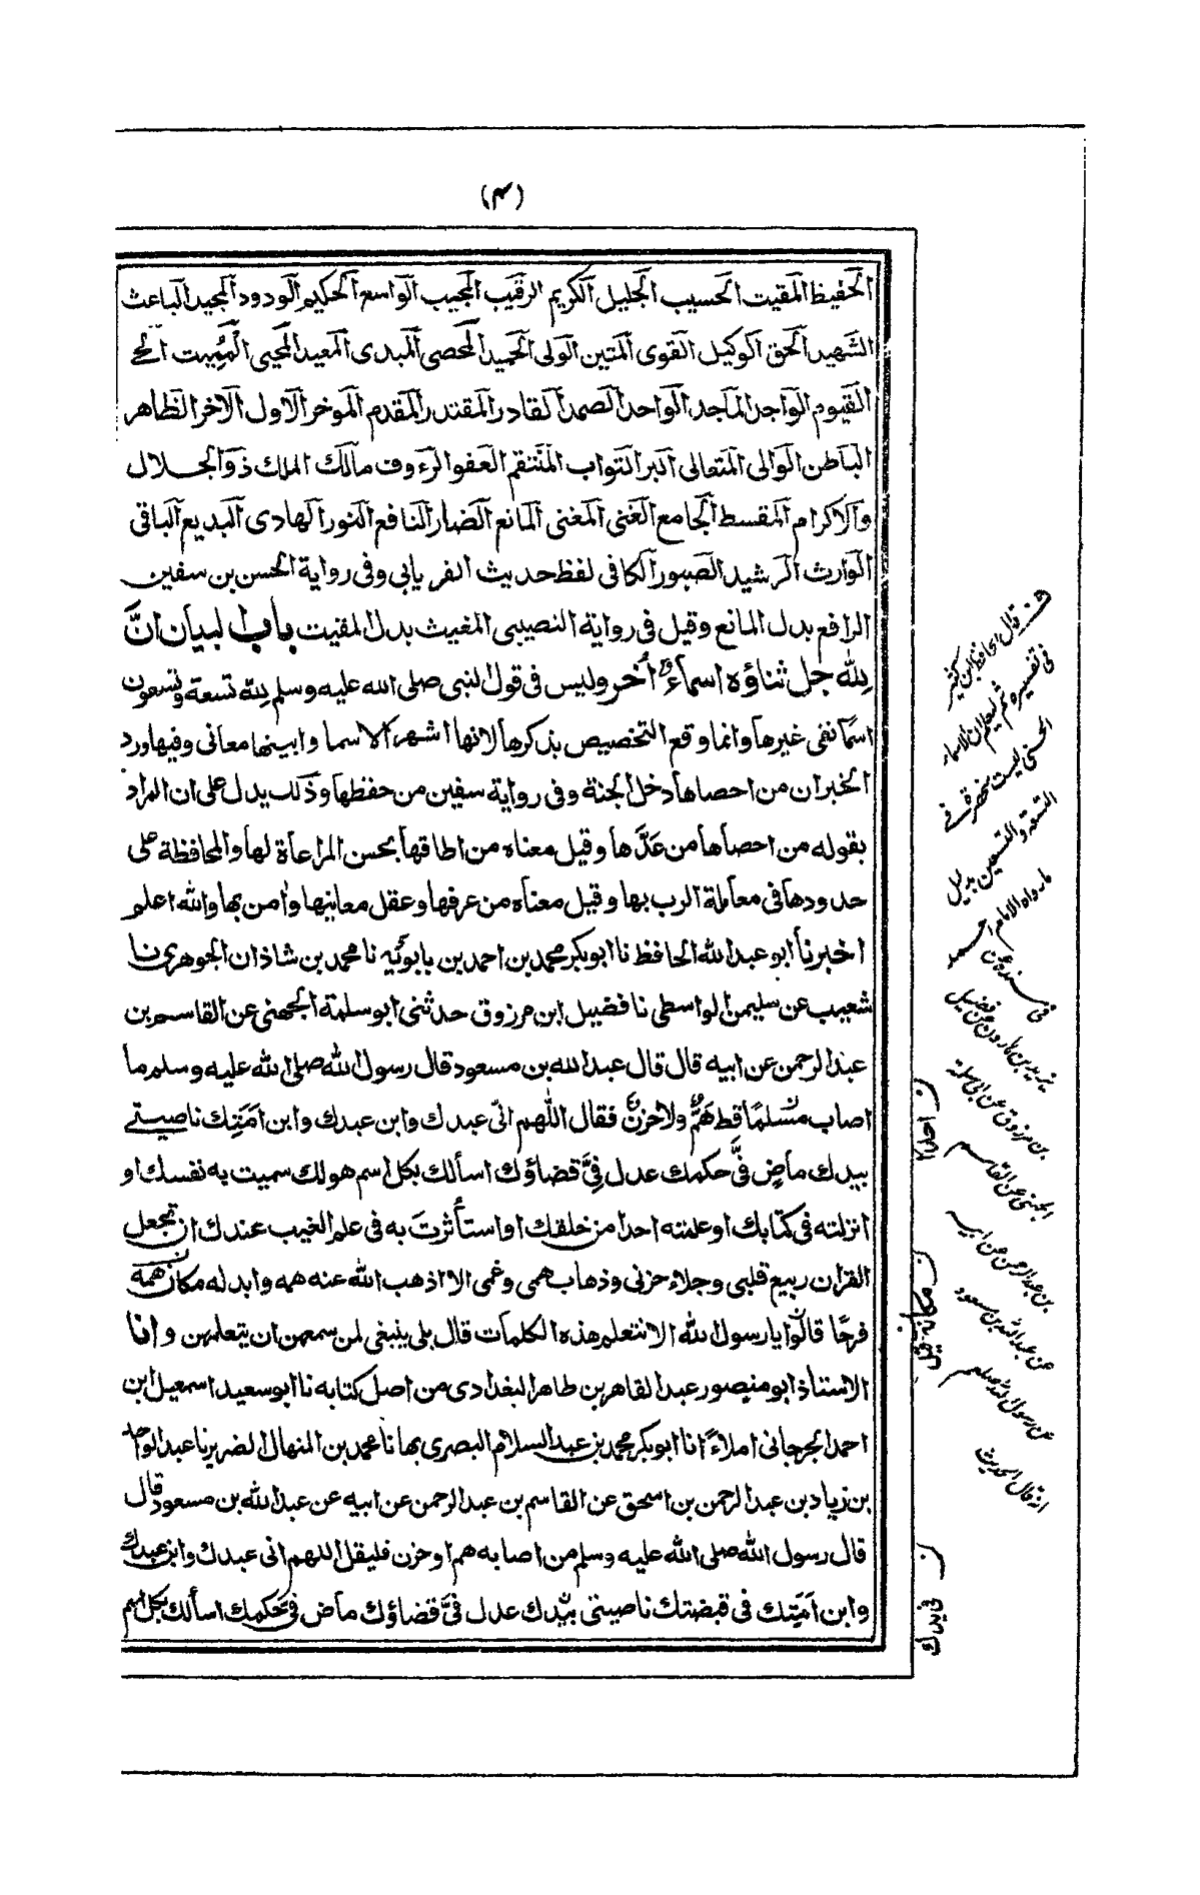 (٣)
الحفيظ المقيت الحسيب الجليل الكريم الرقيب المجيب الواسع الحكيم الودود المجيد الباعث
الشهيد الحق الوكيل القوى المتين الولى الحميد المحصى المبدى المعيد المحيى المميت الحي
القيوم الواجد الماجد الواحد الصمد القادر المقتدر المقدم الموخر الاول الاخر الظاهر
الباطن الوالى المتعالى البر التواب المنتقم العفو الرءوف مالك الملك ذو الجلال
والاكرام المقسط الجامع الغنى المغنى المانع الضار النافع النور الهادى البديع الباقى
الوارث الرشيد الصبور الكافى لفظ حديث الفريابى وفى رواية الحسن بن سفين
الرافع بدل المانع وقيل فى رواية النصيبى المغيث بدل المقيت باب لبيان انَّ
لله جل ثناؤه اسماءً أخر وليس فى قول النبى صلى الله عليه وسلم لله تسعة وتسعون
اسمًا نفى غيرها وانما وقع التخصيص بذكرها لانها اشهر الاسما وابينها معانى وفيها ورد
الخبر ان من احصاها دخل الجنة وفى رواية سفين من حفظها وذلك يدل على ان المراد
بقوله من احصاها من عدَّها وقيل معناه من اطاقها بحسن المراعاة لها والمحافظة على
حدودها فى معاملة الرب بها وقيل معناه من عرفها وعقل معانيها وامن بها والله اعلم
اخبرنا ابو عبد الله الحافظ نا ابو بكر محمد بن احمد بن بابوئيه نا محمد بن شاذان الجوهرى نا
شعيب عن سليمن الواسطى نا فضيل ابن مرزوق حدثنى ابو سلمة الجهنى عن القاسم بن
عبد الرحمن عن ابيه قال قال عبد الله بن مسعود قال رسول الله صلى الله عليه وسلم ما
اصاب مسلمًا قط هَمٌّ ولا حزن فقال اللهم انّى عبدك وابن عبدك وابن اَمَتِك ناصيتي
بيدك ماضٍ فىَّ حكمك عدل فِىَّ قضاؤك اسألك بكل اسم هو لك سميت به نفسك او
انزلته فى كتابك او علمته احدا من خلقك او استأثرتَ به فى علم الغيب عندك ان تجعل
القران ربيع قلبى وجلاء حزنى وذهاب همى وغمى الا اذهب الله عنه همه وابدله مكان همه
فرجًا قالوا يا رسول الله الا نتعلم هذه الكلمات قال بلى ينبغى لمن سمعهن ان يتعلمهن وانا
الاستاذ ابو منصور عبد القاهر بن طاهر البغدادى من اصل كتابه نا ابو سعيد اسمعيل ابن
احمد الجرجانى املاءً انا ابو بكر محمد بن عبد السلام البصرى بها نا محمد بن المنهال الضرير نا عبد الواحد
بن زياد بن عبد الرحمن بن اسحق عن القاسم بن عبد الرحمن عن ابيه عن عبد الله بن مسعود قال
قال رسول الله صلى الله عليه وسلم من اصابه هم او حزن فليقل اللهم انى عبدك وابن عبدك
وابن اَمَتِك فى قبضتك ناصيتى بيدك عدل فىَّ قضاؤك ماض فىَّ حكمك اسألك بكل اسم
قال الحافظ ابن كثير
فى تفسيره ثم ليعلم ان الاسماء
الحسنى ليست منحصرة فى
التسعة والتسعين بدليل
ما رواه الامام احمد
فى مسنده عن
يزيد بن هارون عن فضيل
بن مرزوق عن ابى سلمة
الجهنى عن القاسم
بن عبد الرحمن عن ابيه
عن عبد الله بن مسعود
عن رسول الله صلعم
انه قال الحديث
ن
فى يدك